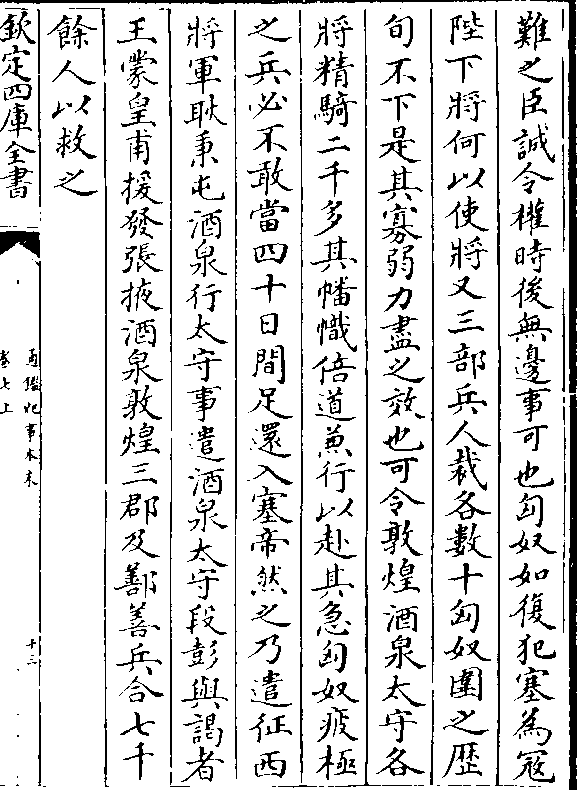 難之臣誠令權時後無邊事可也匈奴如復犯塞為寇
陛下將何以使將又三部兵人裁各數十匈奴圍之歴
旬不下是其寡弱力盡之效也可令敦煌酒泉太守各
將精騎二千多其幡幟倍道兼行以赴其急匈奴疲極
之兵必不敢當四十日間足還入塞帝然之乃遣征西
將軍耿秉屯酒泉行太守事遣酒泉太守段彭與謁者
王蒙皇甫援發張掖酒泉敦煌三郡及鄯善兵合七千
餘人以救之
欽定四庫全書
通鑑紀事本末
卷七上
十二